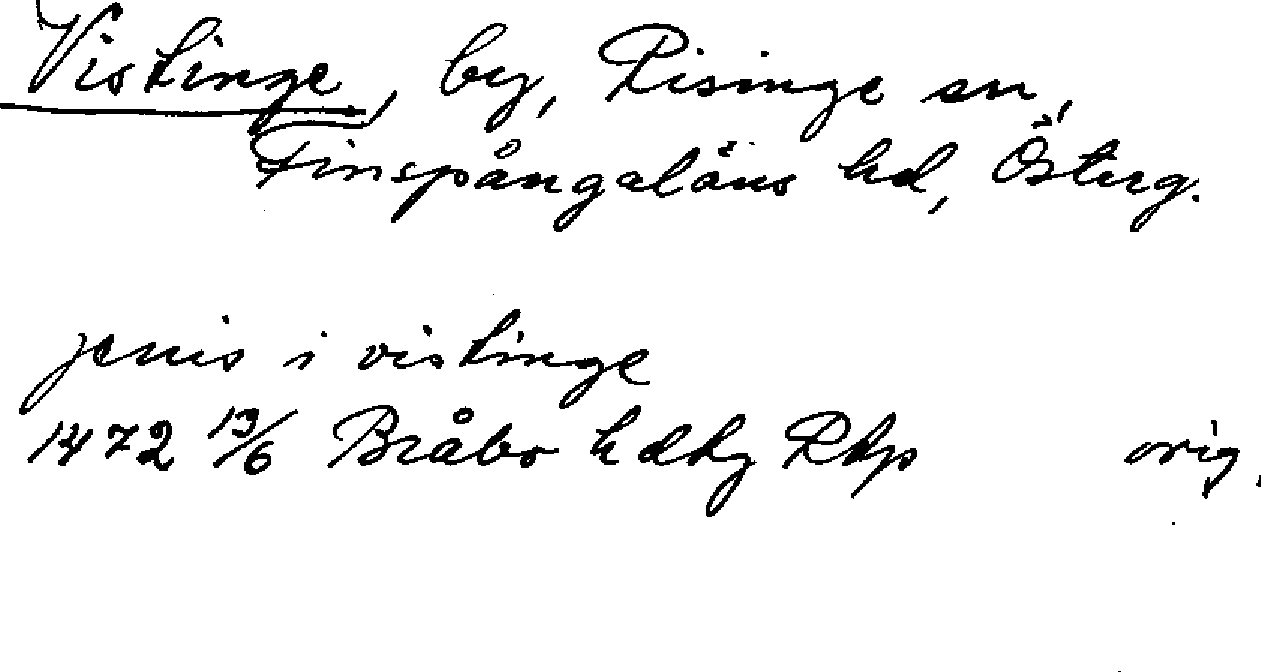 Vistinge, by, Risinge sn,
Finspångaläns hd, Österg.
jenis i vistinge
1472 13/6 Bråbo hdtg RAp orig.